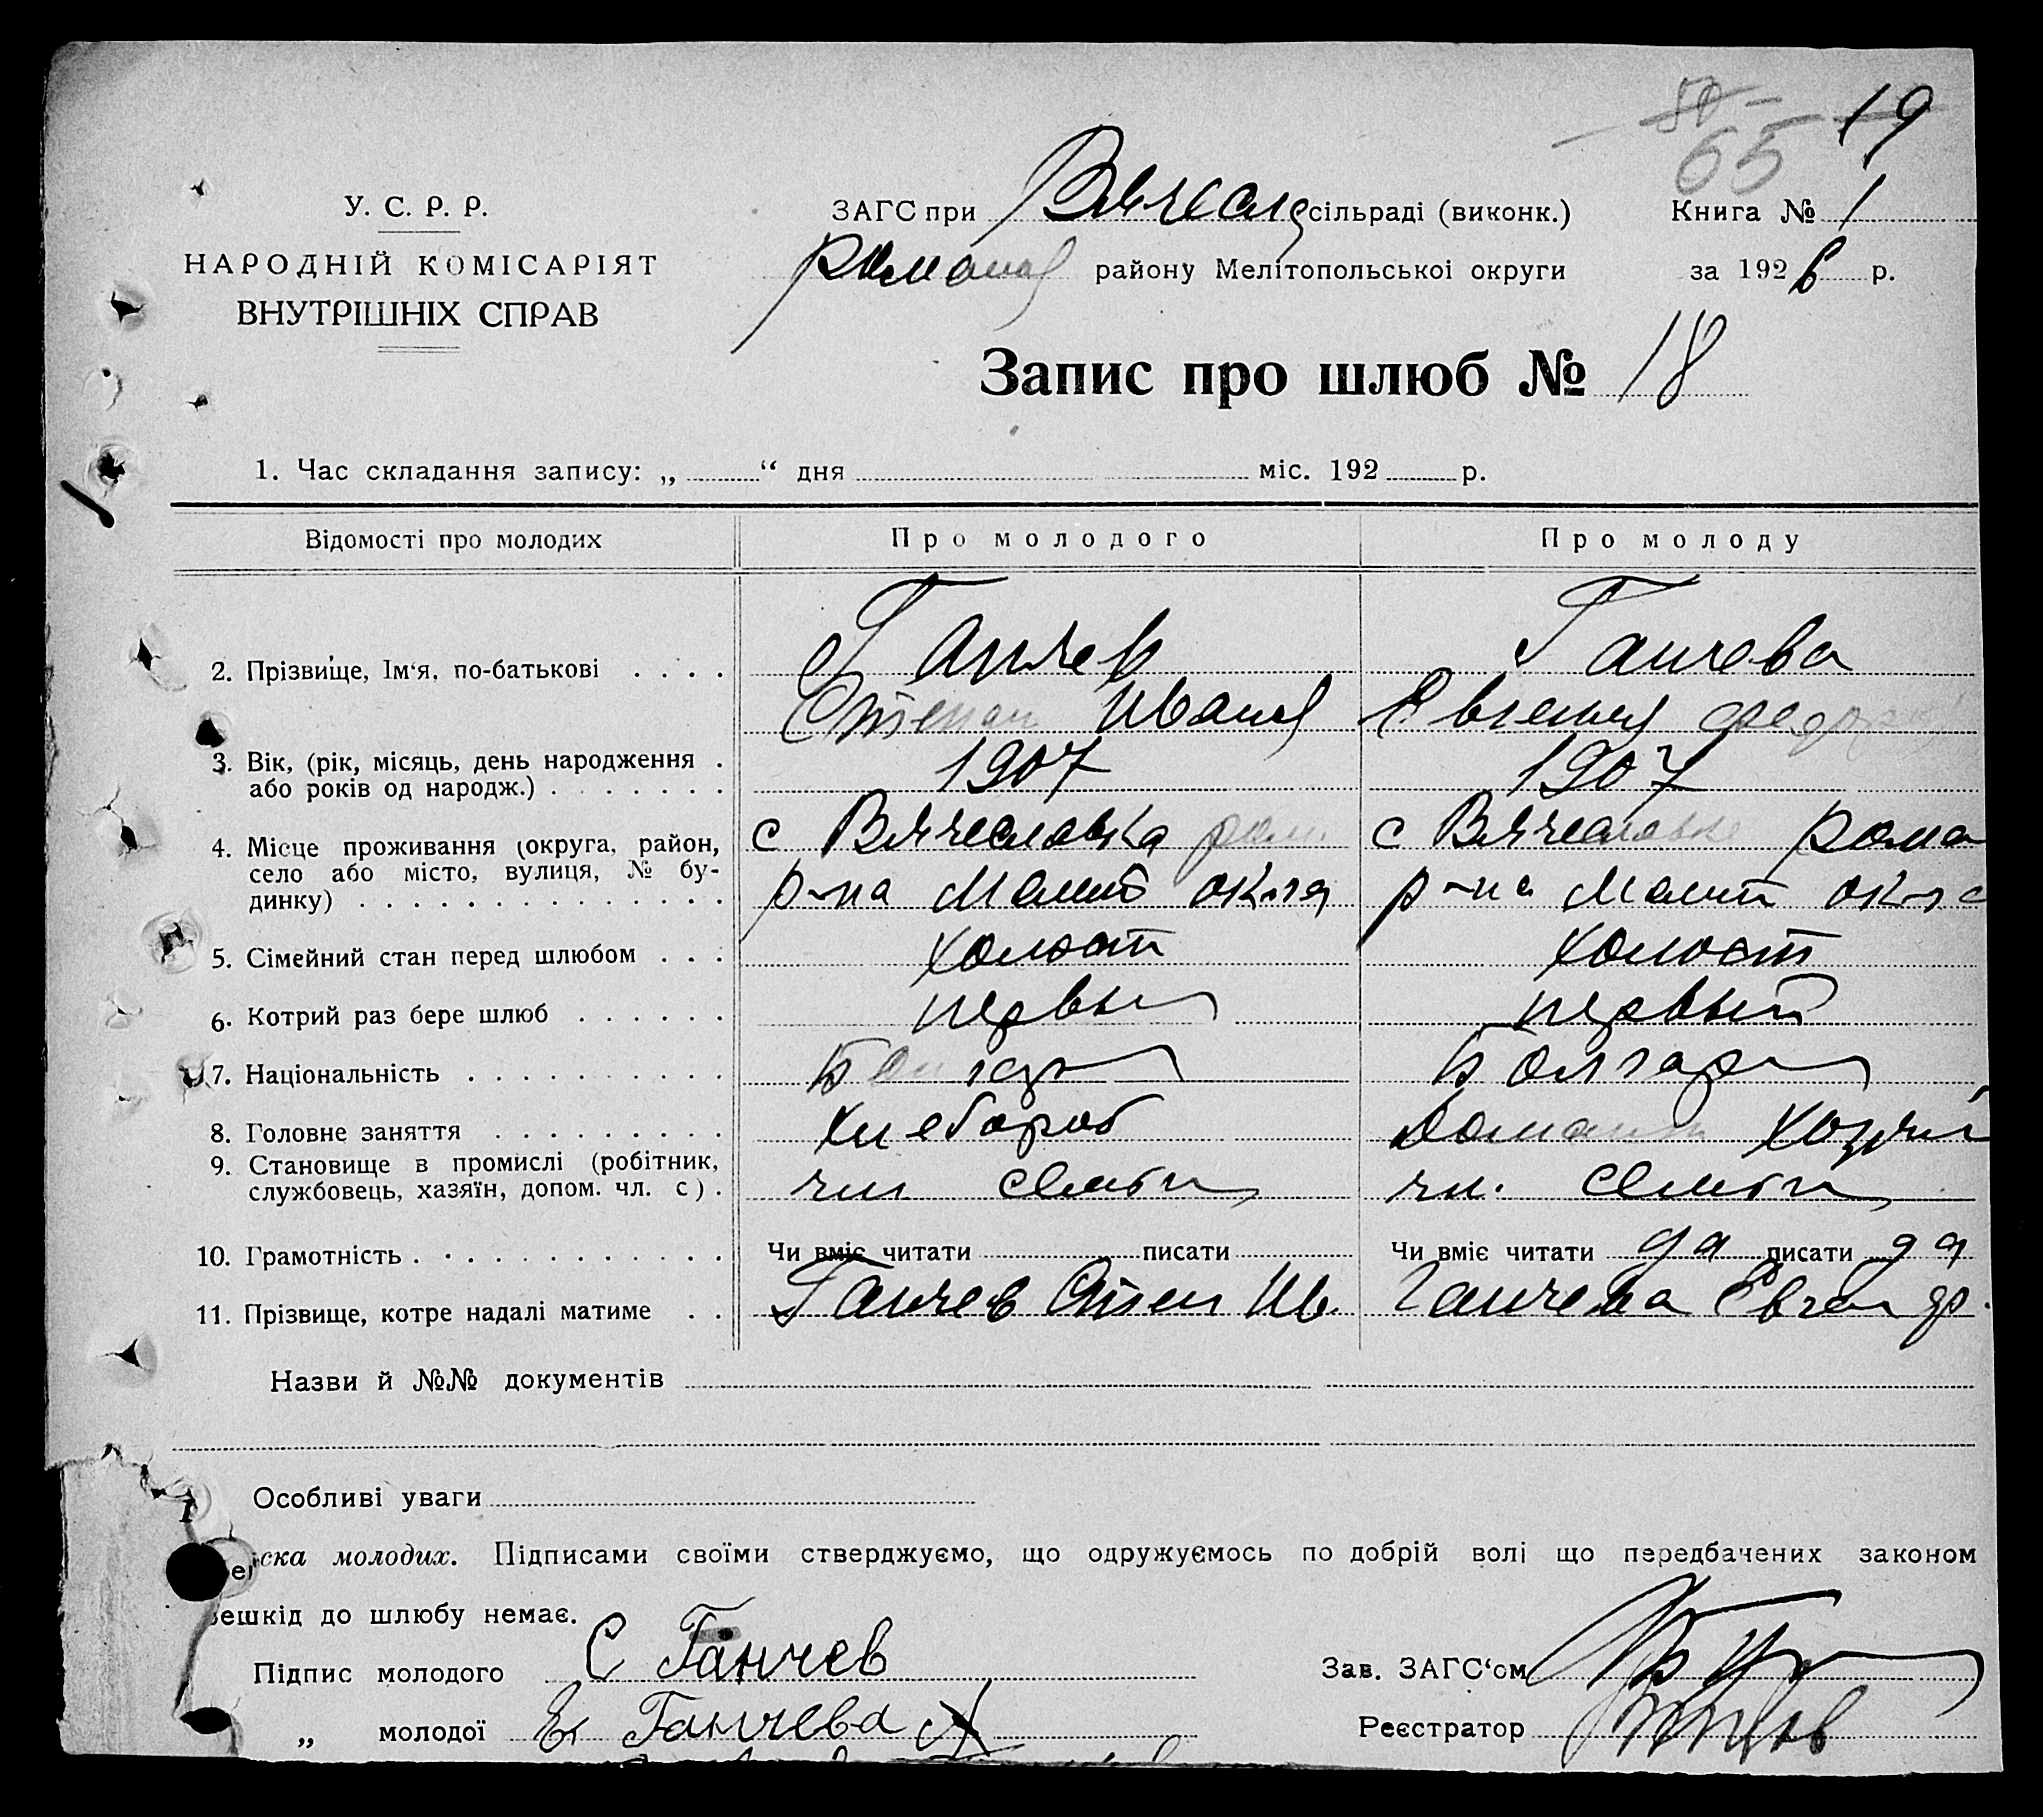 65 19
У. С. Р. Р.
НАРОДНІЙ КОМІСАРІЯТ
ВНУТРІШНІХ СПРАВ
ЗАГС при Вячесл сільраді (виконк.) Книга № 1
Романов району Мелітопольської округи за 1926 р.
Запис про шлюб № 18
1. Час складання запису: „ “ дня міс. 192 р.
Відомості про молодих Про молодого Про молоду
2. Прізвище, Ім‘я, по-батькові . . . . Ганчев Ганчова
Степан Иванов Евгения Федор
3. Вік, (рік, місяць, день народження . 1907 1907
або років од народж.)
4. Місце проживання (округа, район, с Вячеславка ром с Вячеславка рома
село або місто, вулиця, № бу-
динку) р-на Мелит окр р-на Мелит окр
5. Сімейний стан перед шлюбом . . . холост холост
6. Котрий раз бере шлюб первый первый
7. Національність Болгар Болгар
8. Головне заняття Хлебороб Домашн хозяй
9. Становище в промислі (робітник,
службовець, хазяїн, допом. чл. с) . чл семьи чл. семьи
10. Грамотність Чи вміє читати писати Чи вміє читати да писати да
11. Прізвище, котре надалі матиме . . Ганчев Степ Ив. Ганчева Евген
Назви й №№ документів
Особливі уваги
ска молодих. Підписами своїми стверджуємо, що одружуємось по добрій волі що передбачених законом
ешкід до шлюбу немає.
Підпис молодого С Ганчев Зав. ЗАГС‘ом
„ молодої Ев Ганчева Реєстратор